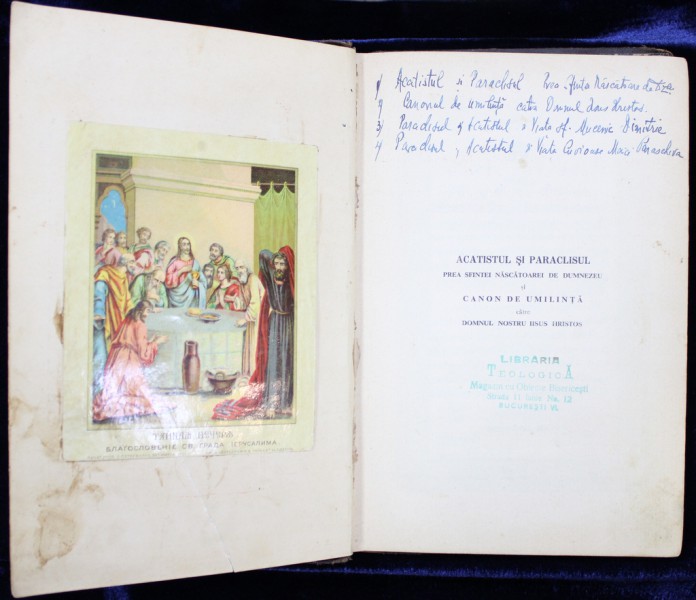 ТАЙНАЯ ВЕЧЕРЯ.
БЛАГОСЛОВЕНІЕ СВ. ГРАДА ІЕРУСАЛИМА.
1) Acatistul si Paraclisul Prea Sfintei Născătoare de
2) Canonul de umilință catre Domnul Isus Hristos.
3) Paraclisul și Acatistul Viata Sf. Mucenic Dimitrie
4) Paraclisul, Acatistul Viata Cuvioase Maici Paraschiva
ACATISTUL ȘI PARACLISUL
PREA SFINTEI NĂSCĂTOAREI DE DUMNEZEU
și
CANON DE UMILINȚĂ
către
DOMNUL NOSTRU IISUS HRISTOS
LIBRĂRIA
TEOLOGICĂ
Magazin cu Obiecte Bisericești
Strada 11 Iunie No. 12
BUCUREȘTI VI.